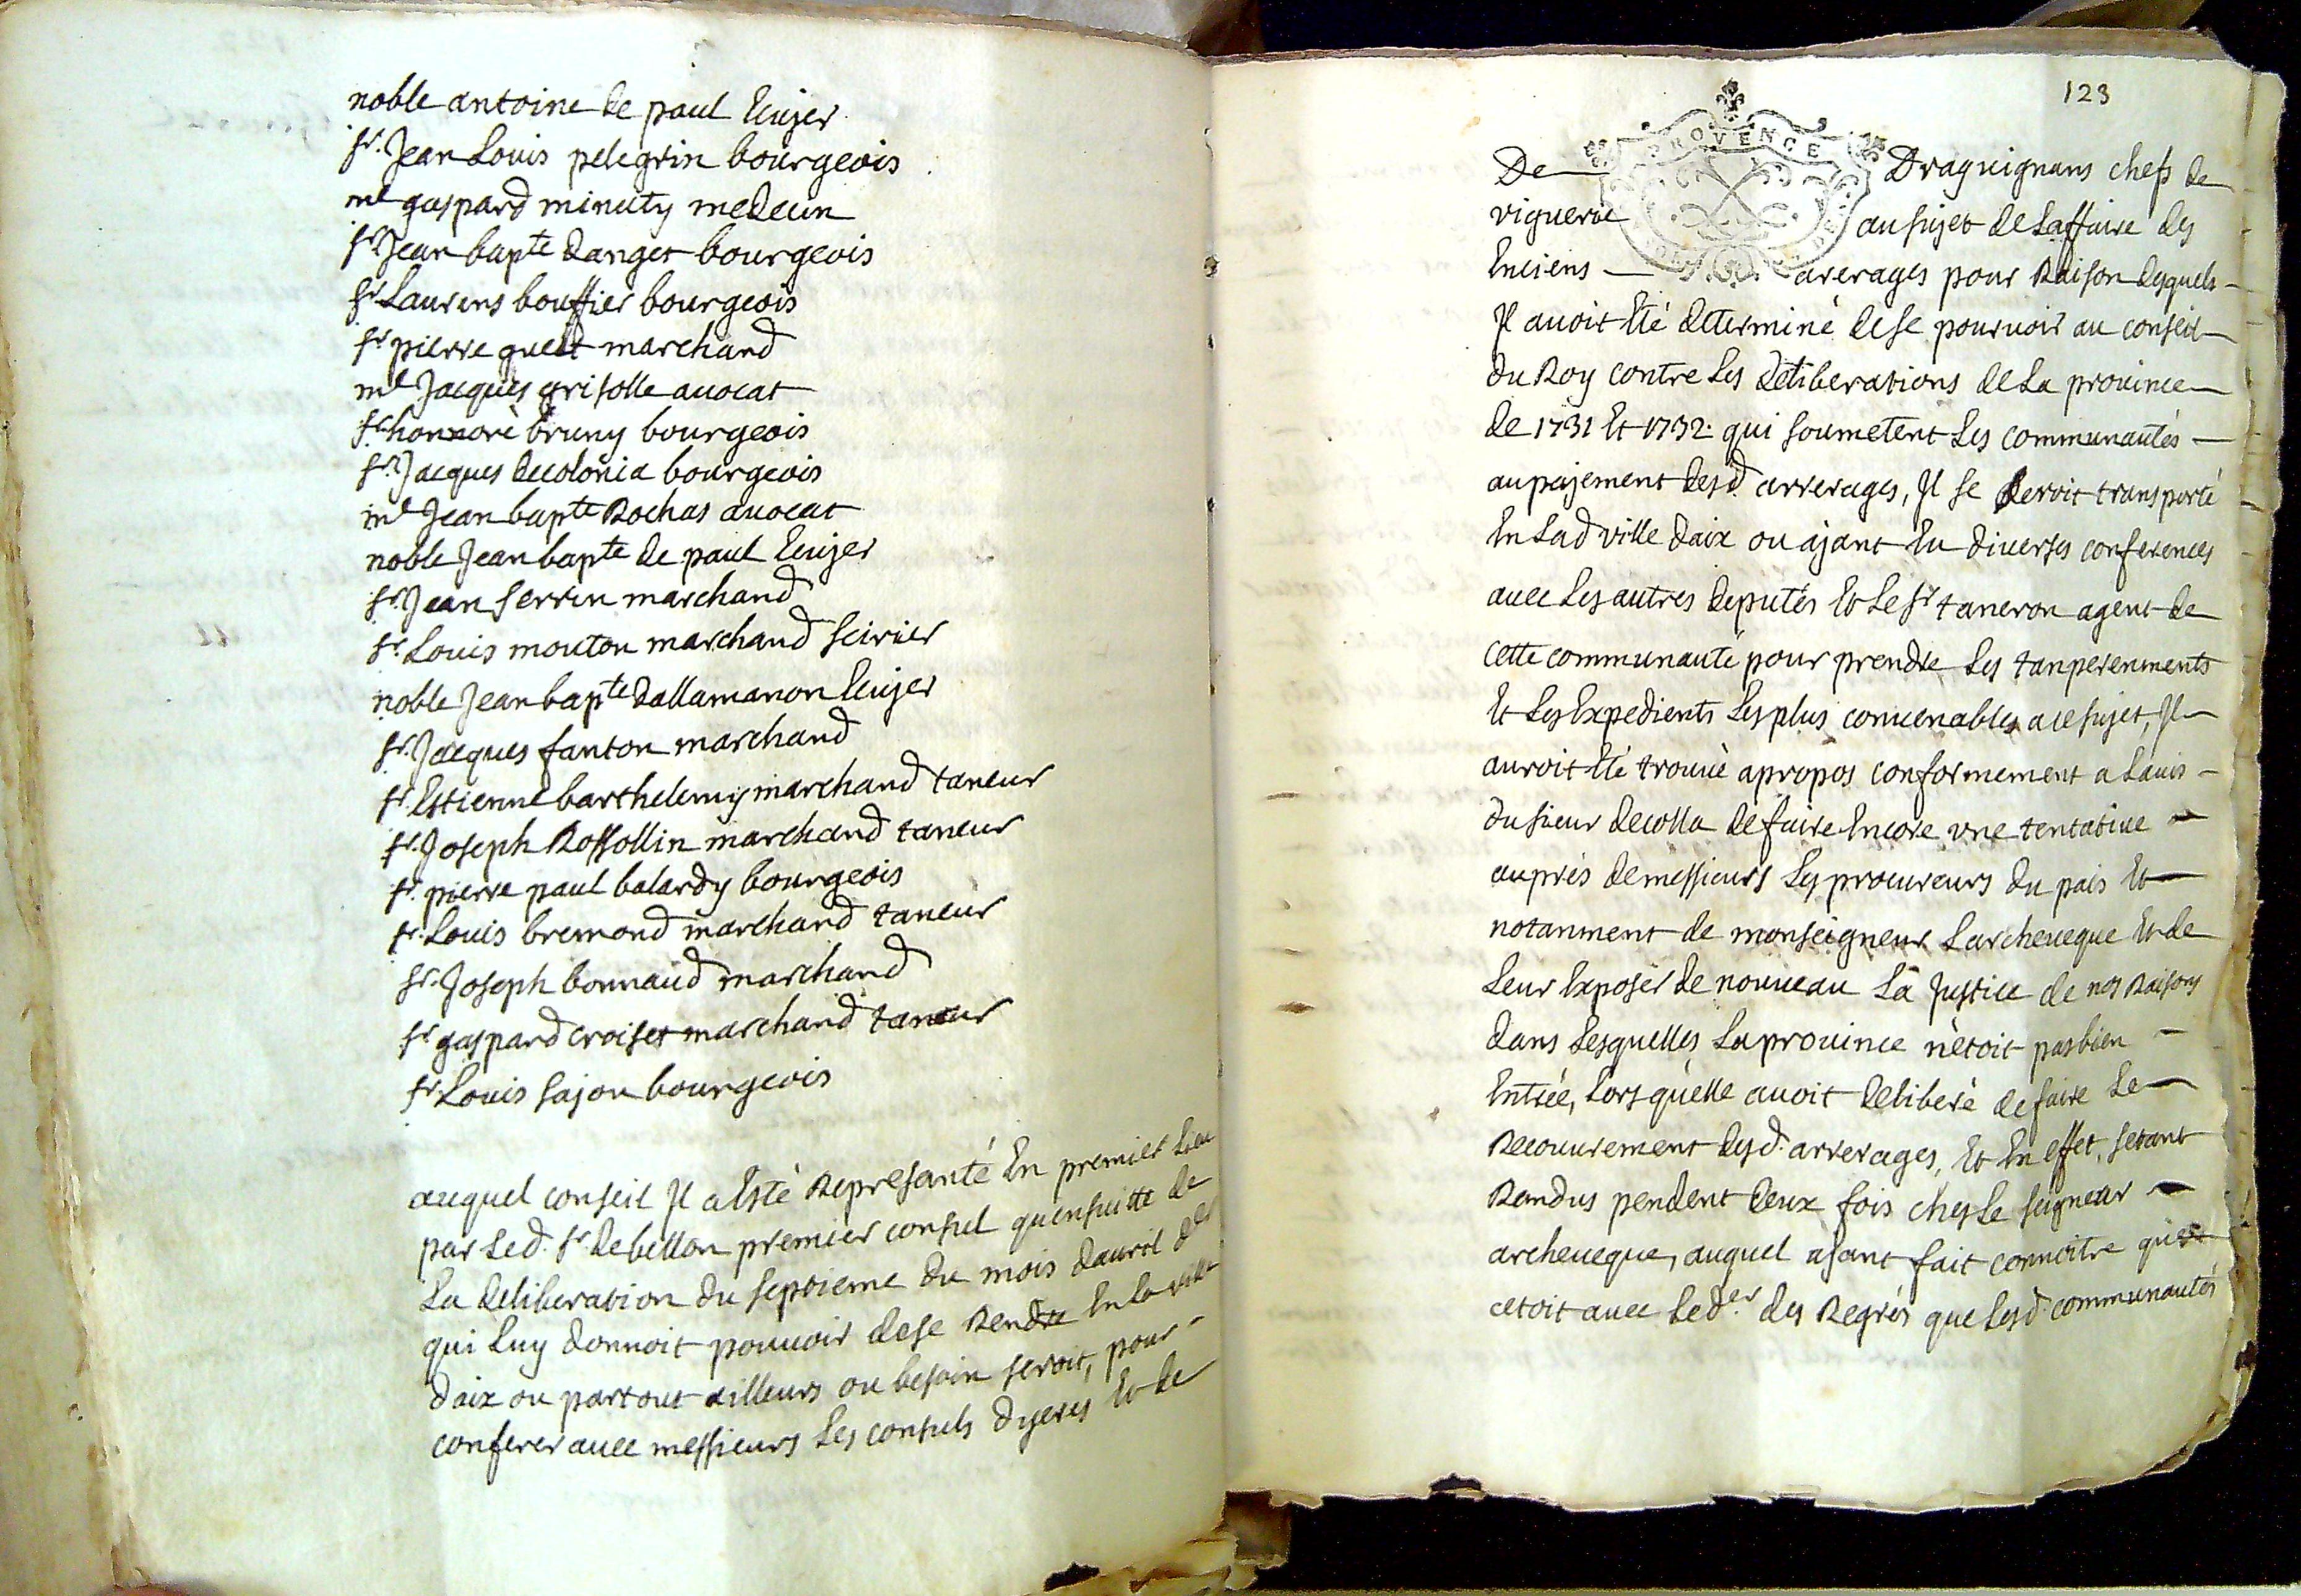 noble antoine de paul Ecuyer
sr. Jean Louis pelegrin bourgeois
me gaspard minuty medecin
sr Jean bapte danget bourgeois
sr Laurens bouffier bourgeois
sr pierre guelt marchand
me Jacques grisolle avocat
sr honnoré bruny bourgeois
sr. Jacques decolonia bourgeois
me Jean bapte Rochas avocat
noble Jean bapte de paul Ecuyer
sr. Jean serrin marchand
sr. Louis mouton marchand scirier
noble Jean bapte dallamanon Ecuyer
sr. Jacques fanton marchand
sr. Estienne barthelemy marchand taneur
sr. Joseph Rossollin marchand taneur
sr. pierre paul balardy bourgeois
sr. Louis bremond marchand taneur
sr. Joseph bonnaud marchand
sr gaspard croiset marchand taneur
sr Louis sajou bourgeois
auquel conseil Il a Esté Represanté En premier Lieu
par led. sr. debellon premier consul quensuitte de
La deliberation du septieme du mois davril der
qui Luy donnoit pouvoir dese Rendre En la ville
daix ou partout ailleurs ou besoin seroit, pour
conferer avec messieurs Les consuls dyeres Et de
123
PROVENCE
De Draguignans chefs de
viguerie au sujet de Laffaire des
Enciens arerages pour Raison desquels
Il avoit Eté determiné dese pourvoir au conseil
du Roy contre Les deliberations de La province
de 1731 Et 1732. qui soumetent Les communautés
au payement desd. arrerages, Il se seroit transporté
En Lad ville daix ou ajant Eu diverses conferences
avec Les autres deputés Et Le sr taneron agent de
cette communauté pour prendre Les tanperenments
Et Les Expedients Les plus convenables a ce sujet, Il
auroit Eté trouvé apropos conformement a Lavis
du sieur decolla de faire Encore une tentative
auprés de messieurs Les procureurs du pais Et
notanment de monseigneur Larcheveque Et de
Leur Exposer de nouveau La Justice de nos Raisons
dans Lesquelles La province n'etoit pas bien
Entrée, Lorsqu'elle avoit deliberé de faire Le
Recouvrement desd. arrerages, Et En effet, setant
Randus pendent deux fois ches Le seigneur
archeveque, auquel ajant fait connoitre que
cetoit avec Led.er des Regrés que Lesd. communautés